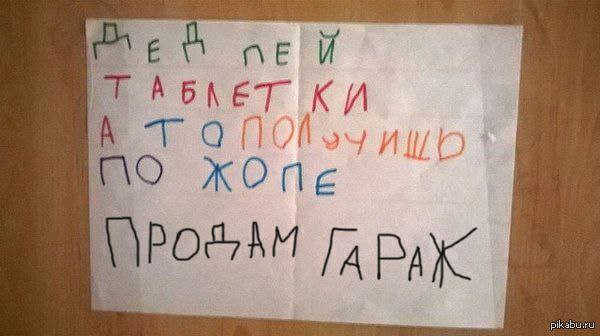 ДЕД ПЕЙ
ТАБЛЕТКИ
А ТО ПОЛУЧИШЬ
ПО ЖОПЕ
ПРОДАМ ГАРАЖ
pikabu.ru